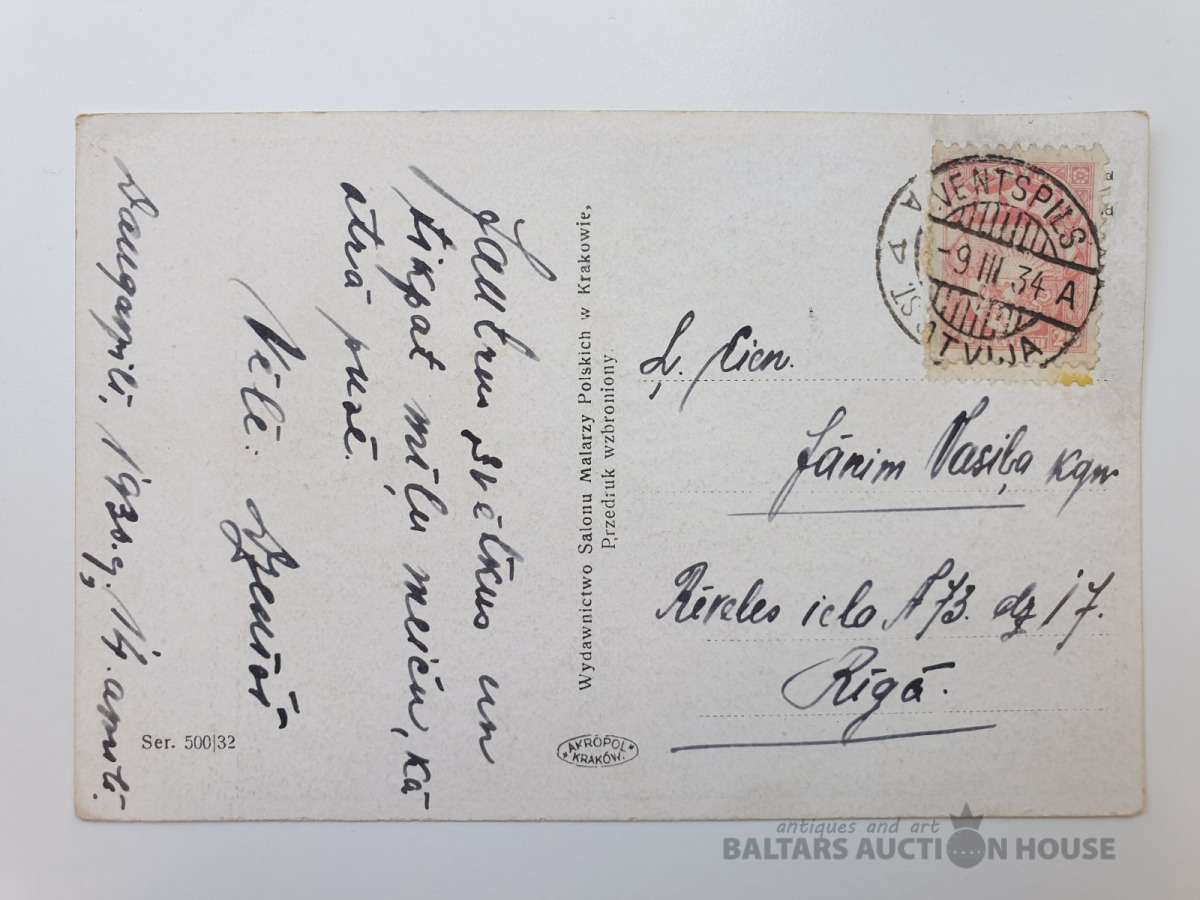 Jautrus svētkus un
tikpat mīļu meiču, kā
otrā pusē.
Vēlē:
Daugavpilī, 193 g. 14.
Wydawnictwo Salonu Malarzy Polskich w Krakowie,
Przedruk wzbroniony.
Ser. 500|32
AKROPOL
KRAKÓW.
VENTSPILS
-9 III 34 A
ST.
LATVIJA
Ļ. Cien.
Jānim Vasiļa kgm
Rēveles ielo № 73. dz 17.
Rīgā.
antiques and art
BALTARS AUCTION HOUSE